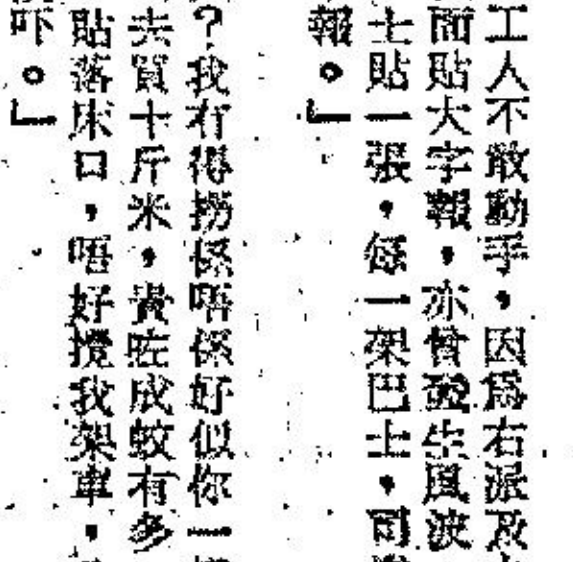 工人不敢動手，因爲右派及
面貼大字報，亦曾發生風波
士貼一張，每一架巴士，司
報。」
？我冇得撈係唔係好似你一
去買十斤米，貴咗成蚊有多
貼落床口，唔好攪我架車，
吓。」